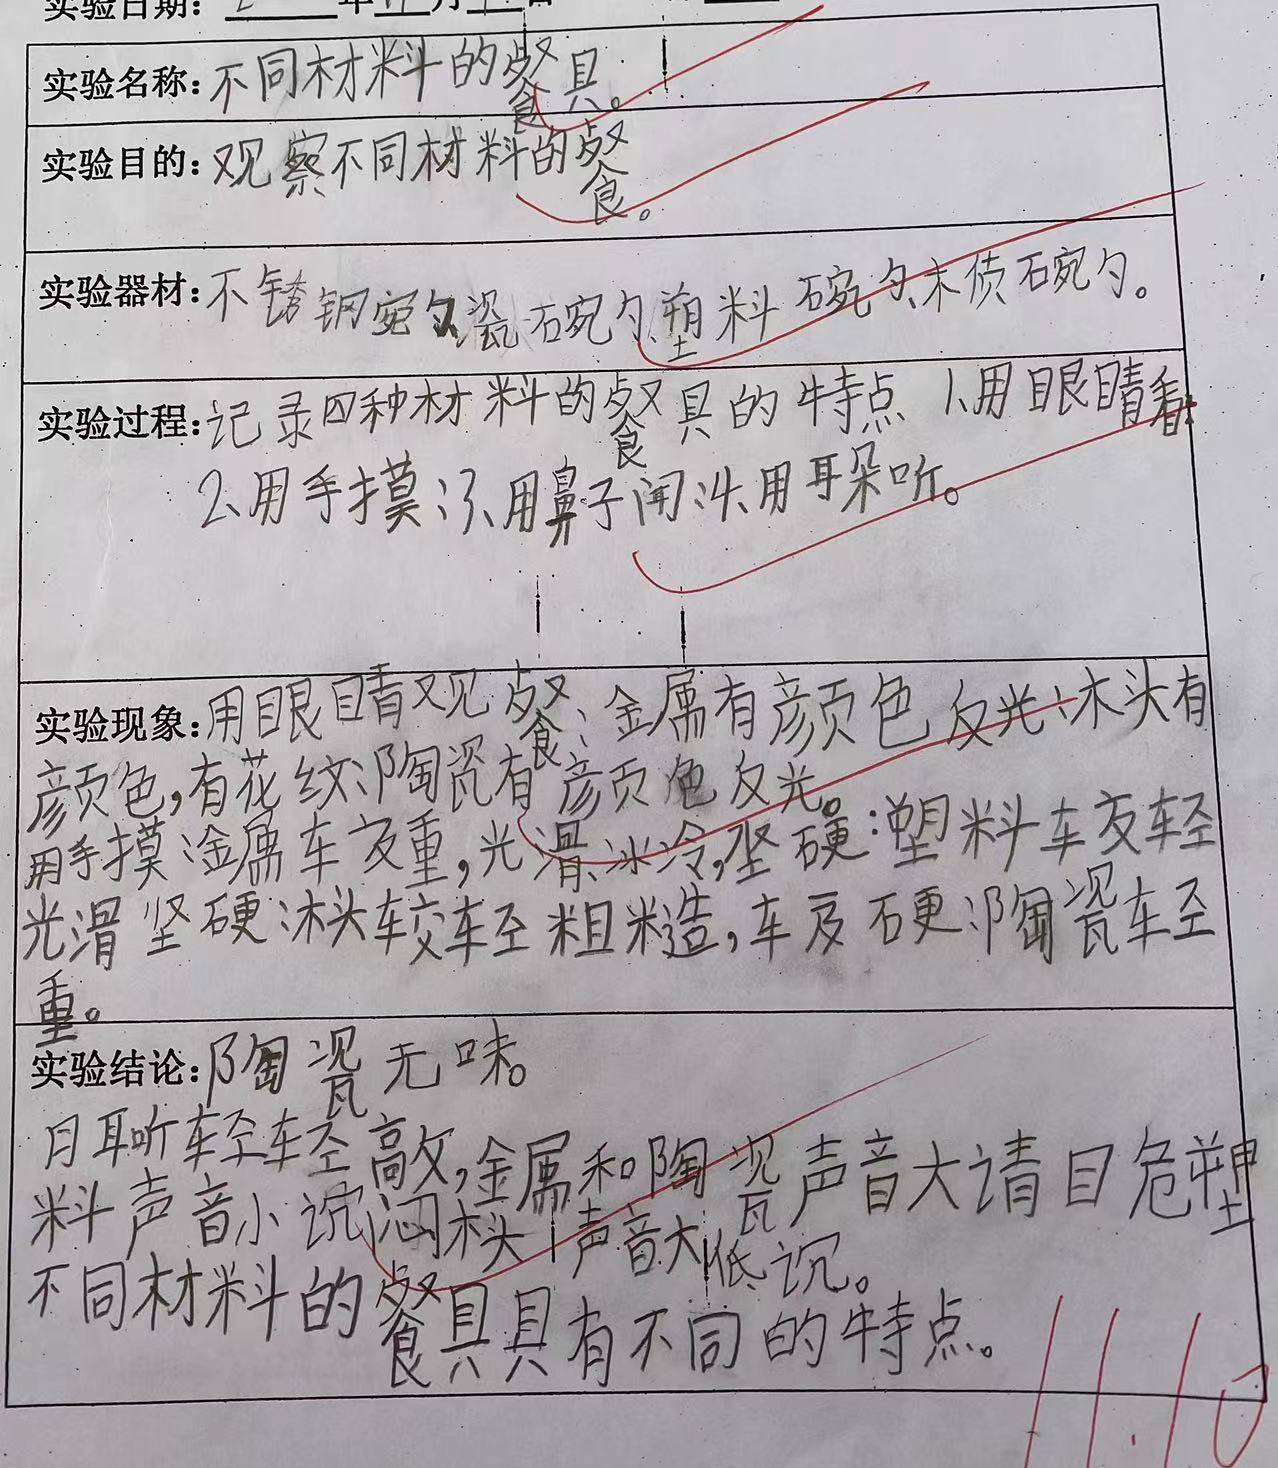 实验日期: 年 月 日
实验名称:不同材料的餐具。
实验目的:观察不同材料的餐。
实验器材:不锈钢宛勺、瓷碗勺、塑料碗勺、木质碗勺。
实验过程:记录四种材料的餐具的特点 1、用眼睛看;
2、用手摸;3、用鼻子闻;4、用耳朵听。
实验现象:用眼睛观餐:金属有颜色反光;木头有
颜色,有花纹;陶瓷有颜色反光。
用手摸:金属较重,光滑冰冷,坚硬:塑料较轻
光滑坚硬:木头较轻粗糙,较硬;陶瓷轻
重。
实验结论:陶瓷无味。
月耳听轻轻敲,金属和陶瓷声音大清脆塑
料声音小沉闷木头声音大低沉。
不同材料的餐具具有不同的特点。
11.10